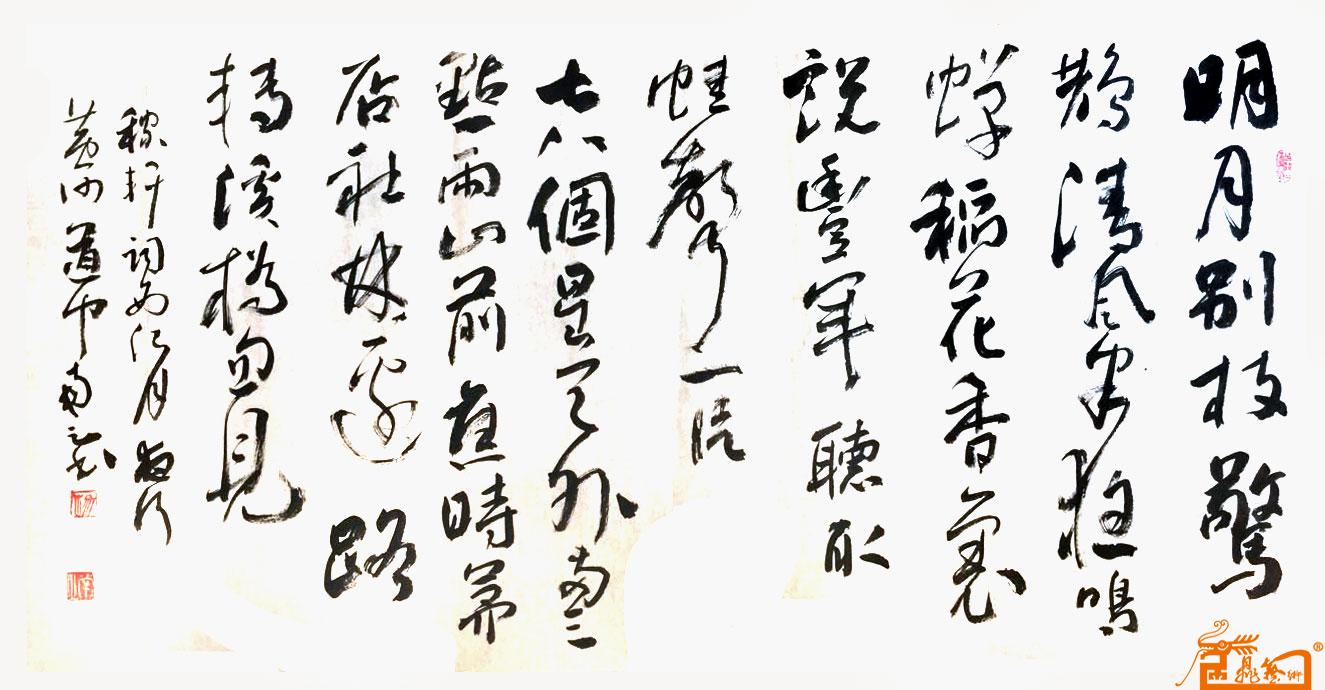 明月别枝驚
鵲清風半夜鳴
蟬稻花香裏
説豐年聽取
蛙聲一片
七八個星天外两三
點雨山前舊時茅
店社林邊路
轉溪橋忽見
稼軒詞西江月夜行
黄沙道中